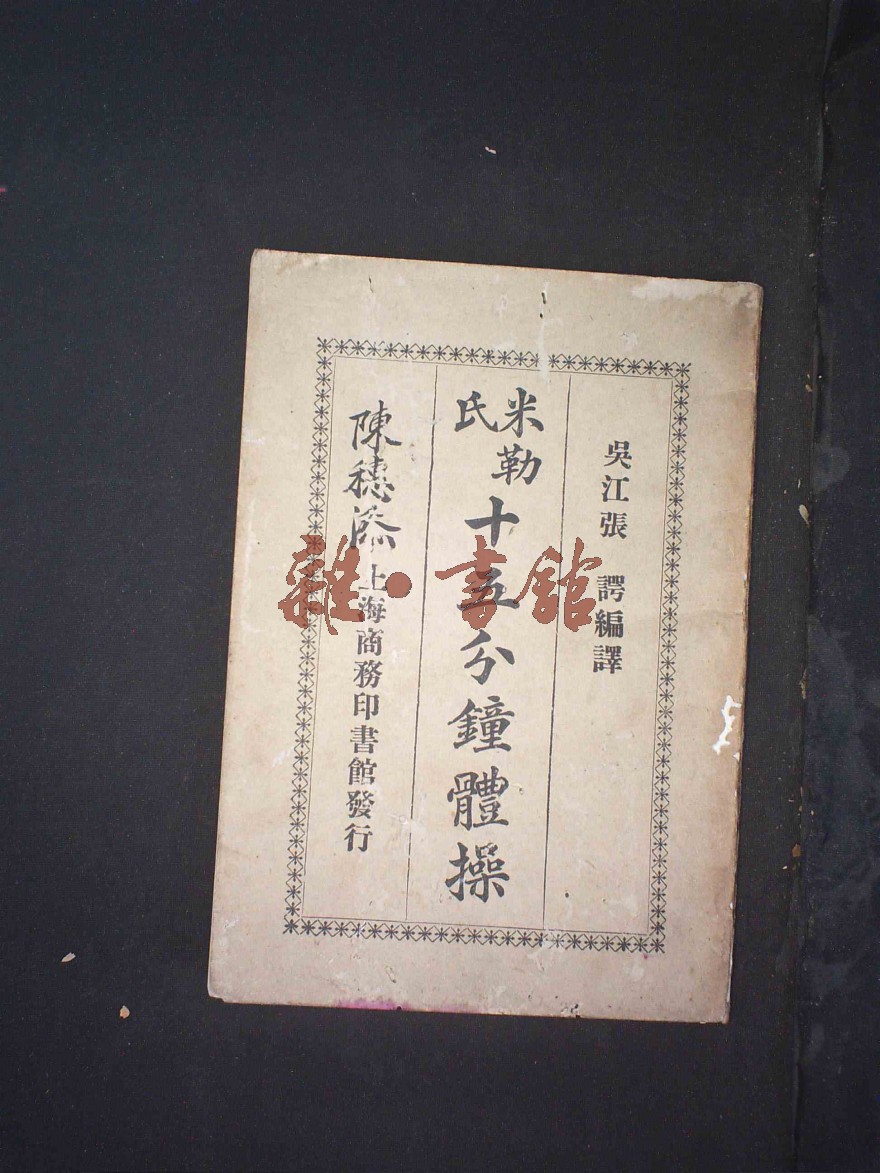 吳江張 諤編譯
米勒氏
十五分鐘體操
陳穗添
上海商務印書館發行
雜·書館